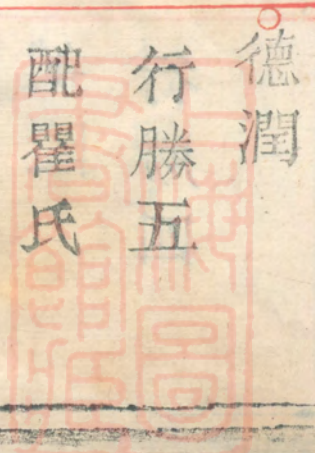 德潤
行勝五
配瞿氏